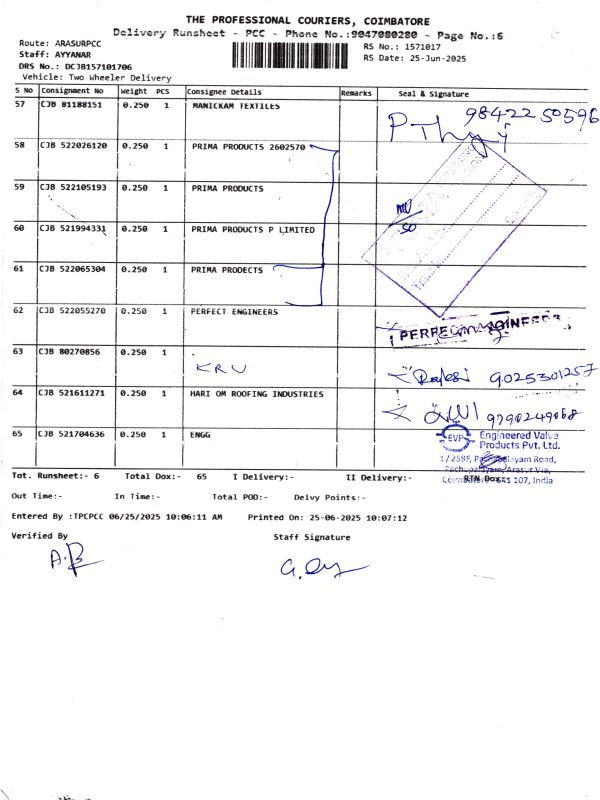 THE PROFESSIONAL COURIERS, COIMBATORE
Delivery Runsheet - PCC - Phone No.:9047080280 - Page No.:6
Route: ARASURPCC
RS No.: 1571017
Staff: AYYANAR
RS Date: 25-Jun-2025
DRS No.: DCJB157101706
Vehicle: Two Wheeler Delivery
S No Consignment No Weight PCS Consignee Details Remarks Seal & Signature
57 CJB 81188151 0.250 1 MANICKAM TEXTILES
9842250596
58 CJB 522026120 0.250 1 PRIMA PRODUCTS 2602570
59 CJB 522105193 0.250 1 PRIMA PRODUCTS
60 CJB 521994331 0.250 1 PRIMA PRODUCTS P LIMITED
61 CJB 522065304 0.250 1 PRIMA PRODECTS
62 CJB 522055270 0.250 1 PERFECT ENGINEERS
63 CJB 80270856 0.250 1 KRU
9025301257
64 CJB 521611271 0.250 1 HARI OM ROOFING INDUSTRIES
9790249068
65 CJB 521704636 0.250 1 ENGG
EVP Engineered Valve
Products Pvt. Ltd.
Tot. Runsheet:- 6 Total Dox:- 65 I Delivery:- II Delivery:- RTN Dox:-
641 107, India
Out Time:- In Time:- Total POD:- Delvy Points:-
Entered By :TPCPCC 06/25/2025 10:06:11 AM Printed On: 25-06-2025 10:07:12
Verified By Staff Signature